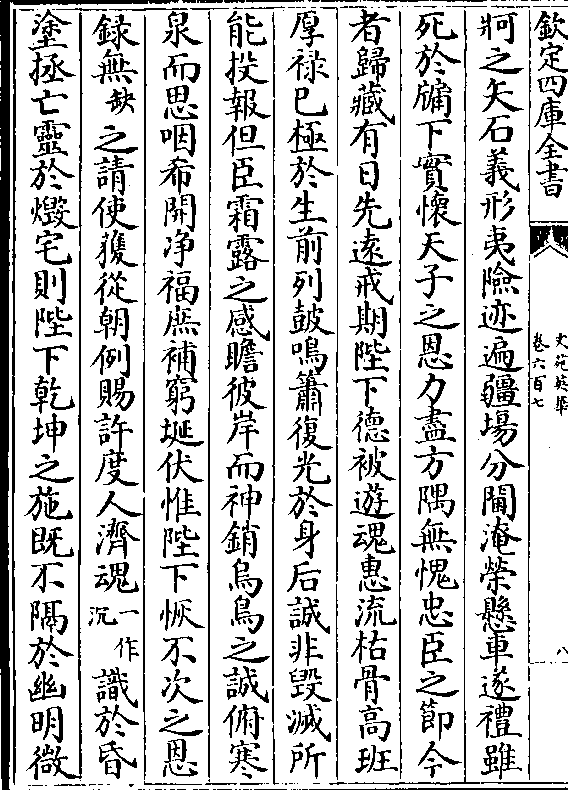 欽定四庫全書
文苑英華
卷六百七
八
牁之矢石義形夷險迹遍疆場分閫淹榮懸車遂禮雖
死於牖下實懷天子之恩力盡方隅無愧忠臣之節今
者歸藏有日先遠戒期陛下德被遊魂惠流枯骨高班
厚禄已極於生前列鼓鳴簫復光於身后誠非毀滅所
能投報但臣霜露之感瞻彼岸而神銷烏鳥之誠俯寒
泉而思咽希開净福庶補窮埏伏惟陛下恢不次之恩
録無缺之請使獲從朝例賜許度人濟魂一作沉識於昏
塗拯亡靈於燬宅則陛下乾坤之施既不隔於幽明微